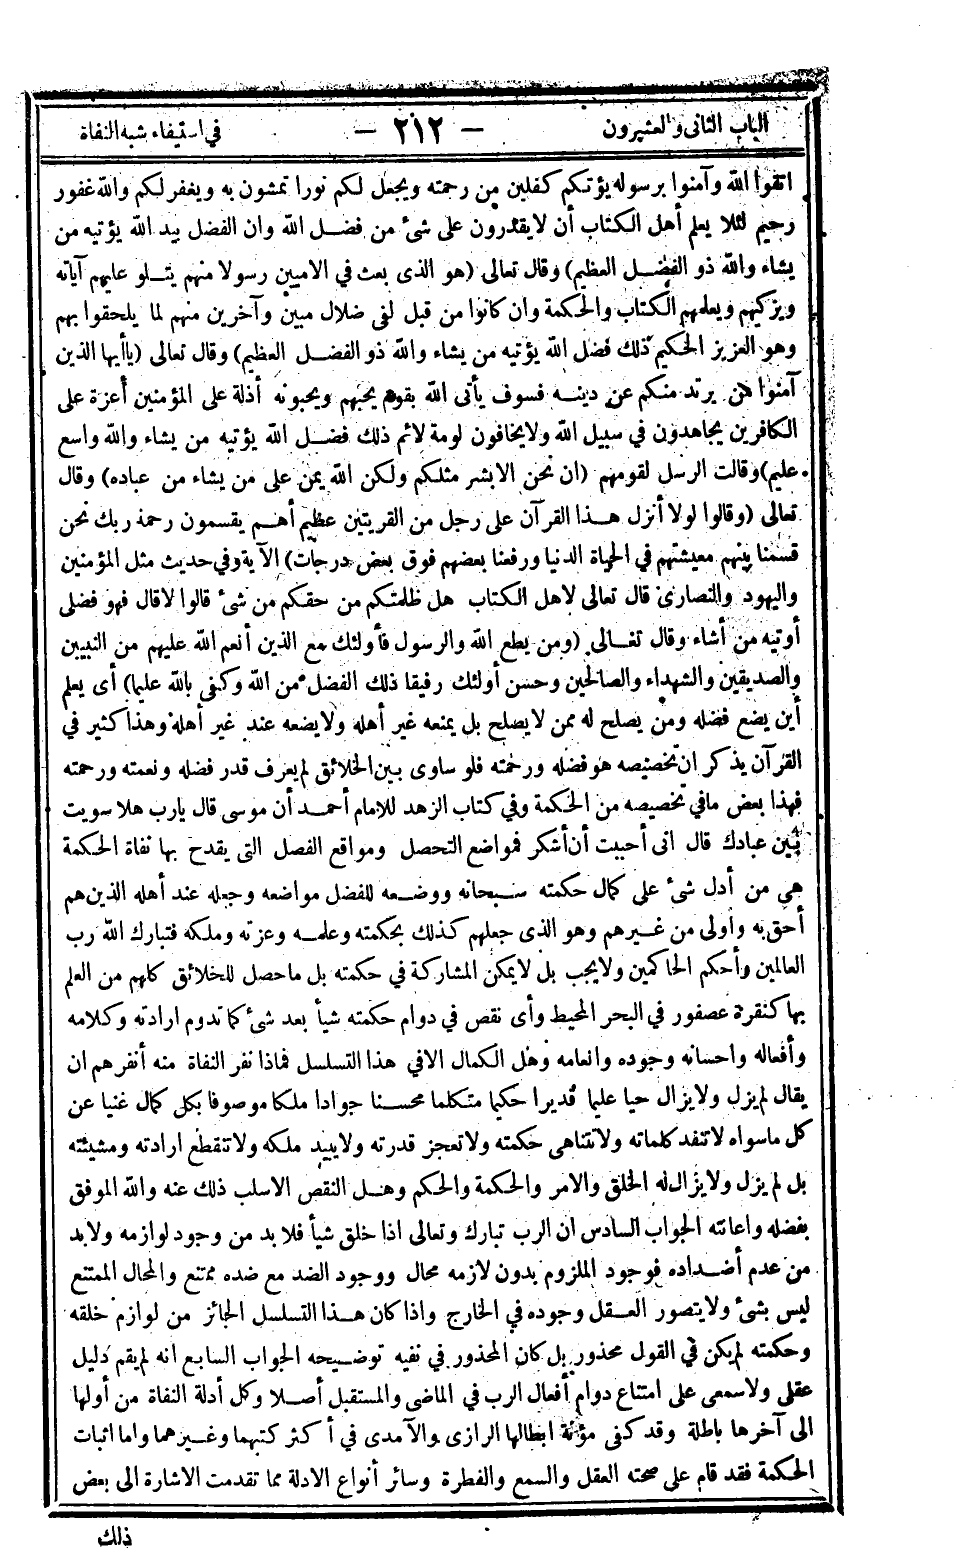 الباب الثانى والعشرون — ٢١٢ — في استيفاء شبه النفاة
اتقوا الله وآمنوا برسوله يؤتكم كفلين من رحمته ويجعل لكم نورا تمشون به ويغفر لكم والله غفور
رحيم لئلا يعلم أهل الكتاب أن لا يقدرون على شئ من فضل الله وان الفضل بيد الله يؤتيه من
يشاء والله ذو الفضل العظيم) وقال تعالى (هو الذى بعث في الاميين رسولا منهم يتلو عليهم آياته
ويزكيهم ويعلمهم الكتاب والحكمة وان كانوا من قبل لفى ضلال مبين وآخرين منهم لما يلحقوا بهم
وهو العزيز الحكيم ذلك فضل الله يؤتيه من يشاء والله ذو الفضل العظيم) وقال تعالى (يا أيها الذين
آمنوا من يرتد منكم عن دينه فسوف يأتى الله بقوم يحبهم ويحبونه أذلة على المؤمنين أعزة على
الكافرين يجاهدون في سبيل الله ولا يخافون لومة لائم ذلك فضل الله يؤتيه من يشاء والله واسع
عليم) وقالت الرسل لقومهم (ان نحن الا بشر مثلكم ولكن الله يمن على من يشاء من عباده) وقال
تعالى (وقالوا لولا أنزل هذا القرآن على رجل من القريتين عظيم أهم يقسمون رحمة ربك نحن
قسمنا بينهم معيشتهم في الحياة الدنيا ورفعنا بعضهم فوق بعض درجات) الآية وفي حديث مثل المؤمنين
واليهود والنصارى قال تعالى لاهل الكتاب هل ظلمتكم من حقكم من شئ قالوا لا قال فهو فضلى
أوتيه من أشاء وقال تعالى (ومن يطع الله والرسول فأولئك مع الذين أنعم الله عليهم من النبيين
والصديقين والشهداء والصالحين وحسن أولئك رفيقا ذلك الفضل من الله وكفى بالله عليما) أى يعلم
أين يضع فضله ومن يصلح له ممن لا يصلح بل يمنعه غير أهله ولا يضعه عند غير أهله وهذا كثير في
القرآن يذكر ان تخصيصه هو فضله ورحمته فلو ساوى بين الخلائق لم يعرف قدر فضله ونعمته ورحمته
فهذا بعض مافي تخصيصه من الحكمة وفي كتاب الزهد للامام أحمد أن موسى قال يارب هلا سويت
بين عبادك قال انى أحببت أن أشكر فمواضع التحصل ومواقع الفصل التى يقدح بها نفاة الحكمة
هى من أدل شئ على كمال حكمته سبحانه ووضعه للفضل مواضعه وجعله عند أهله الذين هم
أحق به وأولى من غيرهم وهو الذى جعلهم كذلك بحكمته وعلمه وعزته وملكه فتبارك الله رب
العالمين وأحكم الحاكمين ولا يجب بل لا يمكن المشاركة في حكمته بل ما حصل للخلائق كلهم من العلم
بها كنقرة عصفور في البحر المحيط وأى نقص في دوام حكمته شيأ بعد شئ كما تدوم ارادته وكلامه
وأفعاله واحسانه وجوده وانعامه وهل الكمال الا في هذا التسلسل فماذا نفر النفاة منه أنفرهم ان
يقال لم يزل ولا يزال حيا عليما قديرا حكيما متكلما محسنا جوادا ملكا موصوفا بكل كمال غنيا عن
كل ماسواه لا تنفد كلماته ولا تتناهى حكمته ولا تعجز قدرته ولا يبيد ملكه ولا تنقطع ارادته ومشيئته
بل لم يزل ولا يزال له الخلق والامر والحكمة والحكم وهل النقص الا سلب ذلك عنه والله الموفق
بفضله واعانته الجواب السادس ان الرب تبارك وتعالى اذا خلق شيأ فلا بد من وجود لوازمه ولا بد
من عدم أضداده فوجود الملزوم بدون لازمه محال ووجود الضد مع ضده ممتنع والمحال الممتنع
ليس بشئ ولا يتصور العقل وجوده في الخارج واذا كان هذا التسلسل الجائز من لوازم خلقه
وحكمته لم يكن في القول محذور بل كان المحذور في نفيه توضيحه الجواب السابع انه لم يقم دليل
عقلى ولا سمعى على امتناع دوام أفعال الرب في الماضى والمستقبل أصلا وكل أدلة النفاة من أولها
الى آخرها باطلة وقد كفى مؤنة ابطالها الرازى والآمدى في أكثر كتبهما وغيرهما واما اثبات
الحكمة فقد قام على صحته العقل والسمع والفطرة وسائر أنواع الادلة مما تقدمت الاشارة الى بعض
ذلك